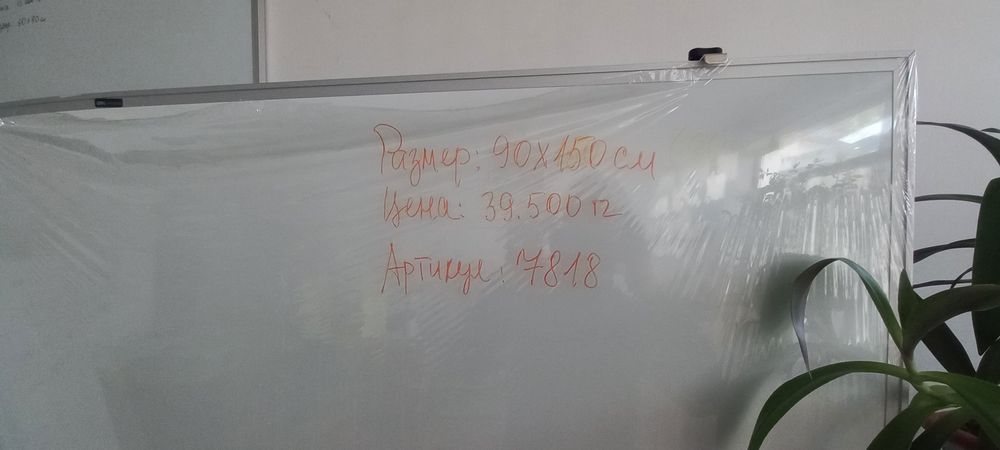 60x90см
Размер: 90x150 см
Цена: 39.500 тг
Артикул: 7818